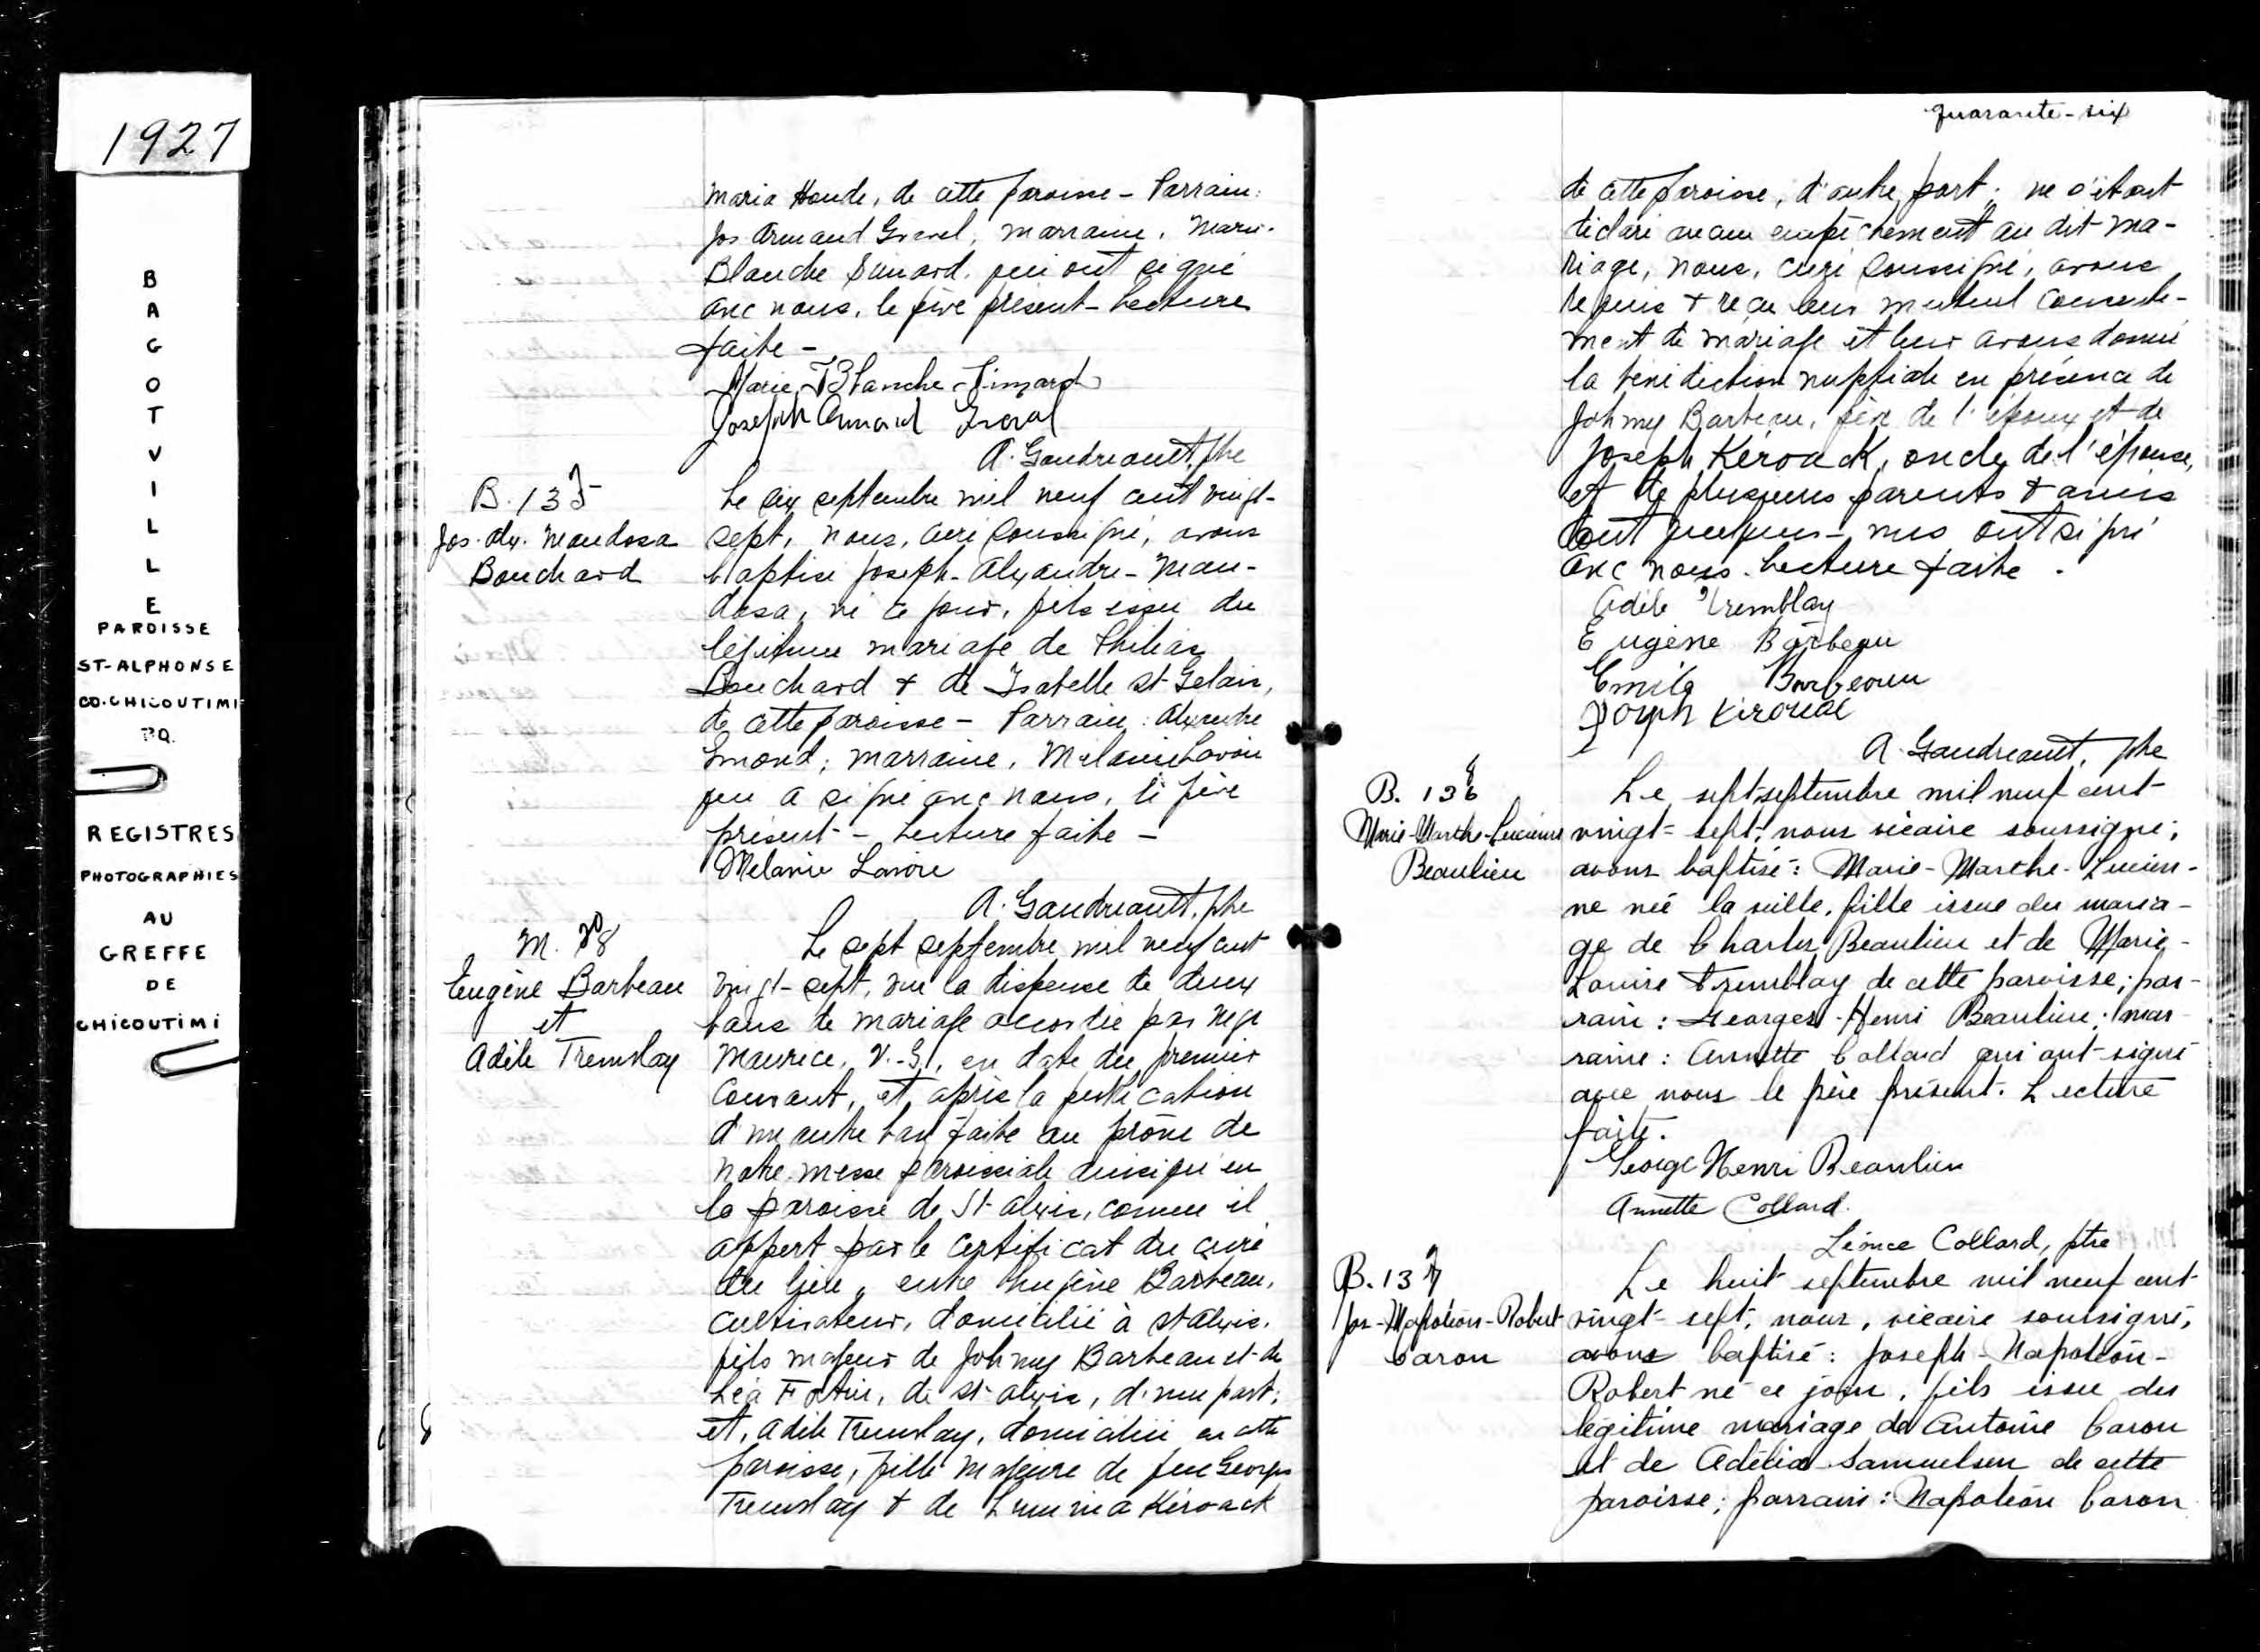 1927
BAGOTVILLE
PAROISSE
ST-ALPHONSE
CO.CHICOUTIMI
P.Q.
REGISTRES
PHOTOGRAPHIES
AU
GREFFE
DE
CHICOUTIMI
Maria Houde, de cette paroisse - Parrain:
Jos. Armand Gravel, marraine, Marie-
Blanche Simard, qui ont signé
avec nous, le père présent - Lecture
faite -
Marie Blanche Simard
Joseph Armand Graval
A. Gaudreault, ptre
B. 135
Jos. Alx. Mandosa
Bouchard
Le six septembre mil neuf cent vingt-
sept, nous, curé soussigné, avons
baptisé Joseph-Alexandre-Man-
dosa, né ce jour, fils issu du
légitime mariage de
Bouchard + de Isabelle St Gelais,
de cette paroisse - Parrain: Alexandre
Emond; marraine, Melanie Lavoie
qui a signé avec nous, le père
présent - Lecture faite -
Melanie Lavoie
A. Gaudreault, ptre
M.
Eugène Barbeau
et
Adèle Tremblay
Le sept septembre mil neuf cent
vingt-sept, vu la dispense de deux
bans de mariage accordée par Mgr
Maurice, V.-G., en date du premier
courant, et après la publication
d'un autre ban faite au prône de
notre messe paroissiale ainsi qu'en
la paroisse de St-Alexis, comme il
appert par le certificat du curé
du lieu, entre Eugène Barbeau,
cultivateur, domicilié à St Alexis,
fils majeur de Johnny Barbeau et de
Léa Fortin, de St-Alexis, d'une part;
et, Adèle Tremblay, domiciliée en cette
paroisse, fille majeure de feu Georges
Tremblay + de Kérouack
quarante-six
de cette paroisse, d'autre part; ne s'étant
déclaré aucun empêchement au dit ma-
riage, nous, curé soussigné, avons
requis + reçu leur mutuel consente-
ment de mariage et leur avons donné
la bénédiction nuptiale en présence de
Johnny Barbeau, père de l'époux et de
Joseph Kérouack, oncle de l'épouse,
et de plusieurs parents + amis
dont quelques-uns ont signé
avec nous. Lecture faite.
Adèle Tremblay
Eugène Barbeau
Barbeau
Joseph Kirouac
A. Gaudreault, ptre
B. 136
Marie-Marthe-Lucienne
Beaulieu
Le sept septembre mil neuf cent
vingt-sept, nous vicaire soussigné,
avons baptisé: Marie-Marthe-Lucien-
ne née la veille, fille issue du maria-
ge de Charles Beaulieu et de Marie-
Louise Tremblay de cette paroisse; par-
rain: Georges-Henri Beaulieu; mar-
raine: Annette Collard qui ont signé
avec nous le père présent. Lecture
faite.
George Henri Beaulieu
Annette Collard.
Léonce Collard, ptre
B. 137
Jos-Napoléon-Robert
Caron
Le huit septembre mil neuf cent
vingt-sept, nous, vicaire soussigné,
avons baptisé: Joseph-Napoléon-
Robert né ce jour, fils issu du
légitime mariage de Antoine Caron
et de Adélia Samuelsen de cette
paroisse; parrain: Napoléon Caron